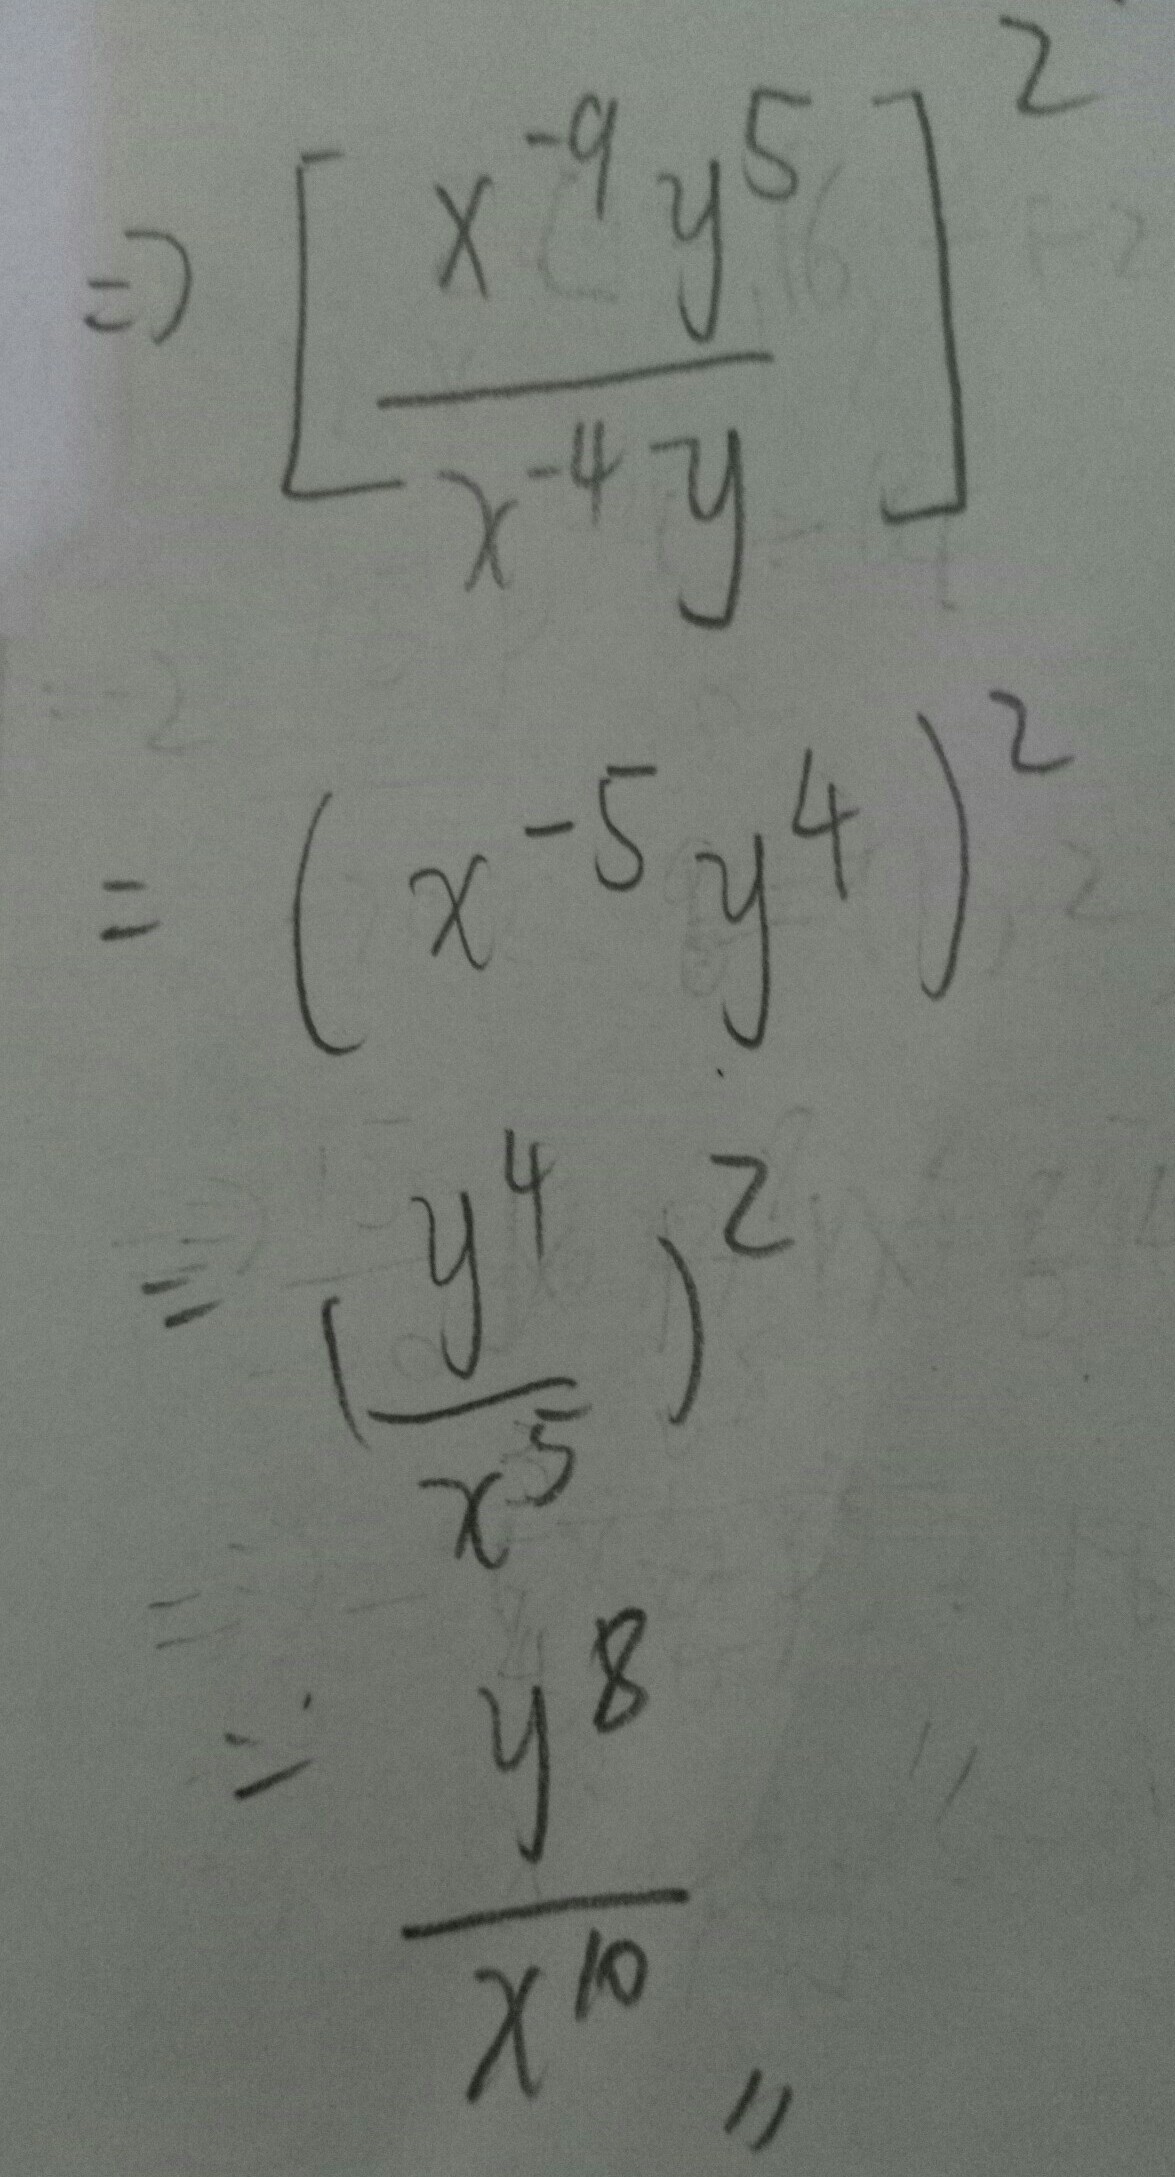 => [x^-9 y^5 / x^-4 y]^2
= (x^-5 y^4)^2
= (y^4 / x^5)^2
= y^8 / x^10 〃